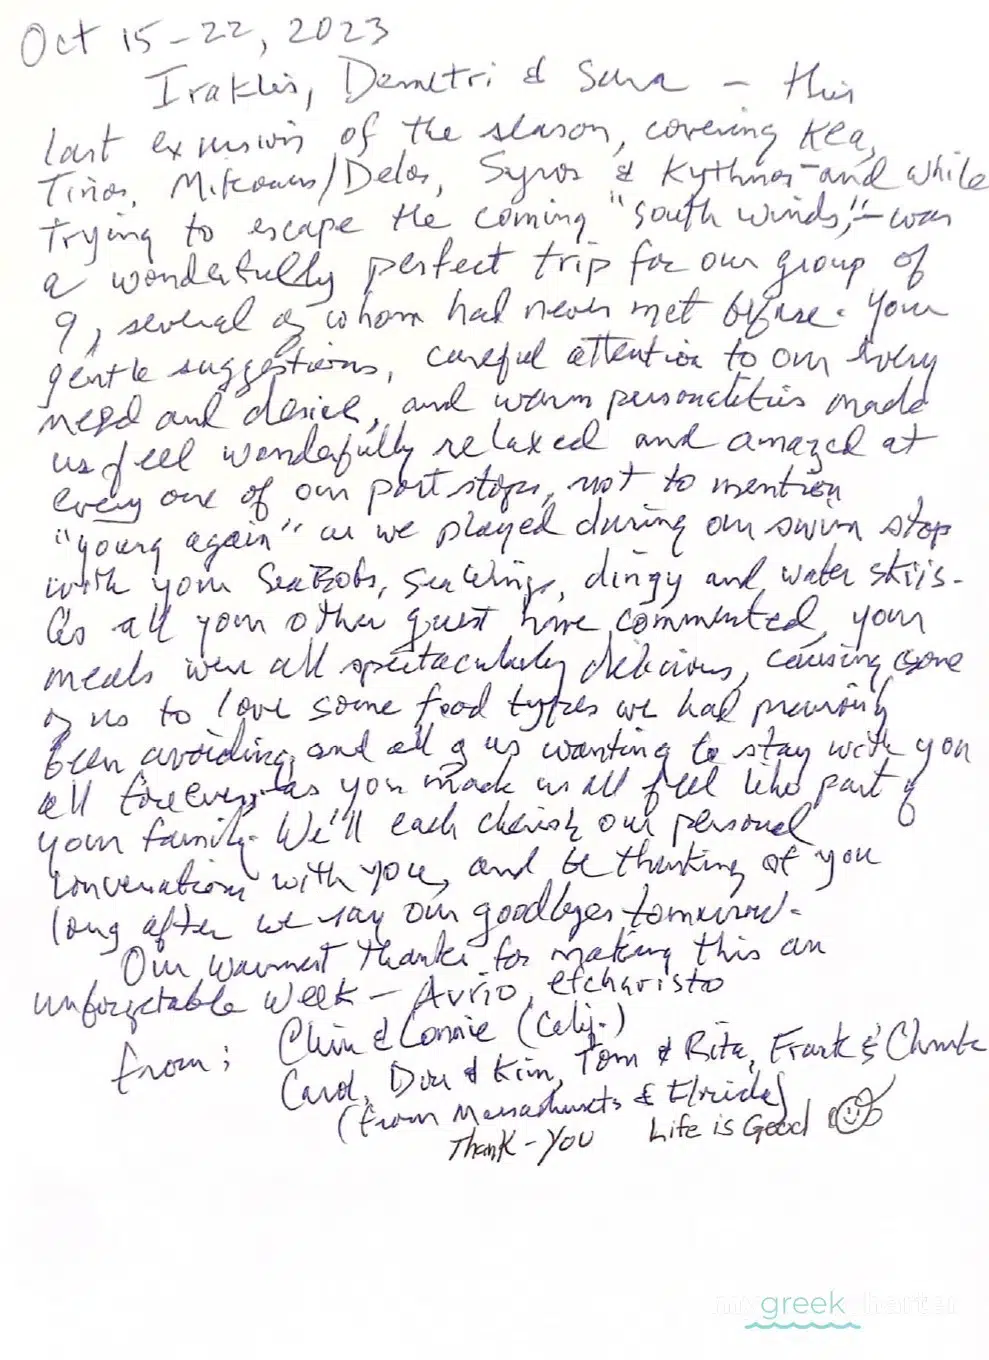 Oct 15-22, 2023
Iraklis, Demetri & Sara - this
last excursion of the season, covering Kea,
Tinos, Mikonos/Delos, Syros & Kythnos - and while
trying to escape the coming "south winds," - was
a wonderfully perfect trip for our group of
9, several of whom had never met before. Your
gentle suggestions, careful attention to our every
need and desire, and warm personalities made
us feel wonderfully relaxed and amazed at
every one of our port stops, not to mention
"young again" as we played during our swim stop
with your SeaBobs, SeaWings, dingy and water skiis.
As all your other guest have commented, your
meals were all spectacularly delicious, causing some
of us to love some food types we had previously
been avoiding, and all of us wanting to stay with you
all forever, as you made us all feel like part of
your family. We'll each cherish our personal
conversations with you, and be thinking of you
long after we say our goodbyes tomorrow.
Our warmest thanks for making this an
unforgettable week - Avrio, efcharisto
from: & Connie (Calif.)
Carol, & Kim, Tom & Rita, Frank &
(from Massachusetts & Florida)
Thank-You Life is Good
mygreekcharter